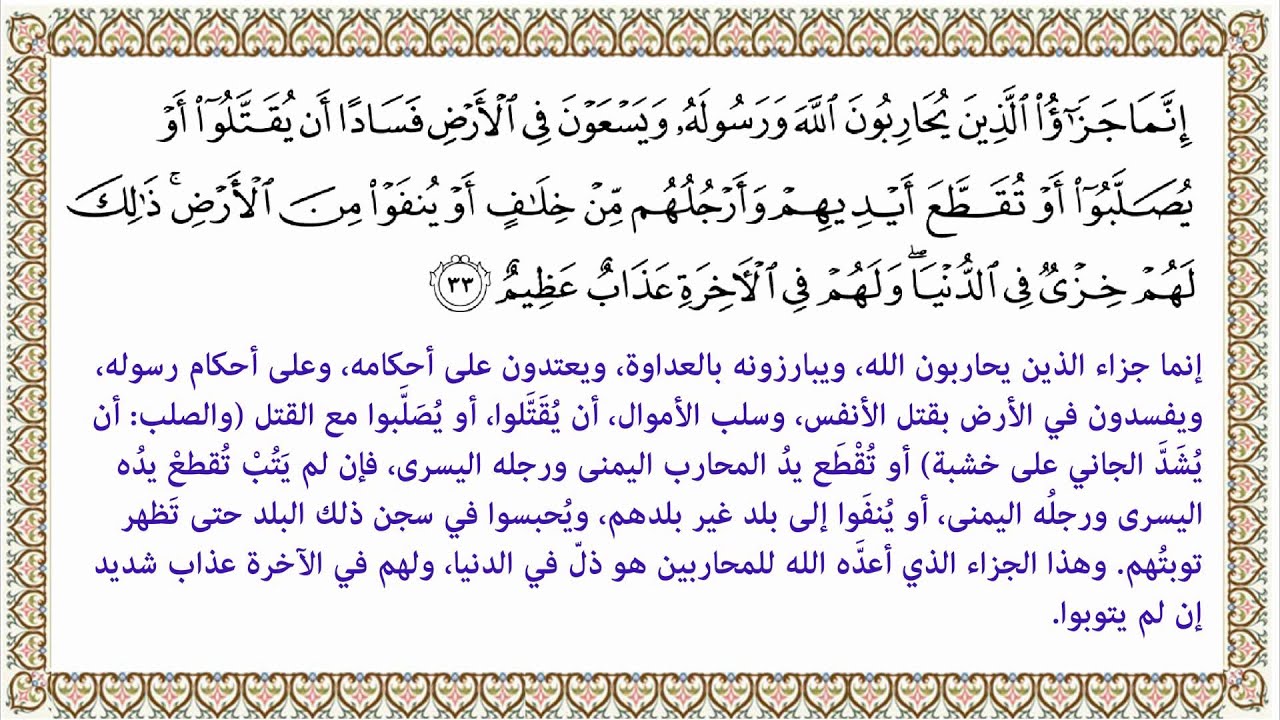 إِنَّمَا جَزَٰٓؤُاْ ٱلَّذِينَ يُحَارِبُونَ ٱللَّهَ وَرَسُولَهُۥ وَيَسۡعَوۡنَ فِي ٱلۡأَرۡضِ فَسَادًا أَن يُقَتَّلُوٓاْ أَوۡ
يُصَلَّبُوٓاْ أَوۡ تُقَطَّعَ أَيۡدِيهِمۡ وَأَرۡجُلُهُم مِّنۡ خِلَٰفٍ أَوۡ يُنفَوۡاْ مِنَ ٱلۡأَرۡضِۚ ذَٰلِكَ
لَهُمۡ خِزۡيٞ فِي ٱلدُّنۡيَاۖ وَلَهُمۡ فِي ٱلۡأٓخِرَةِ عَذَابٌ عَظِيمٌ ٣٣
إنما جزاء الذين يحاربون الله، ويبارزونه بالعداوة، ويعتدون على أحكامه، وعلى أحكام رسوله،
ويفسدون في الأرض بقتل الأنفس، وسلب الأموال، أن يُقَتَّلوا، أو يُصَلَّبوا مع القتل (والصلب: أن
يُشَدَّ الجاني على خشبة) أو تُقْطَع يدُ المحارب اليمنى ورجله اليسرى، فإن لم يَتُبْ تُقطعْ يدُه
اليسرى ورجلُه اليمنى، أو يُنفَوا إلى بلد غير بلدهم، ويُحبسوا في سجن ذلك البلد حتى تَظهر
توبتُهم. وهذا الجزاء الذي أعدَّه الله للمحاربين هو ذلّ في الدنيا، ولهم في الآخرة عذاب شديد
إن لم يتوبوا.